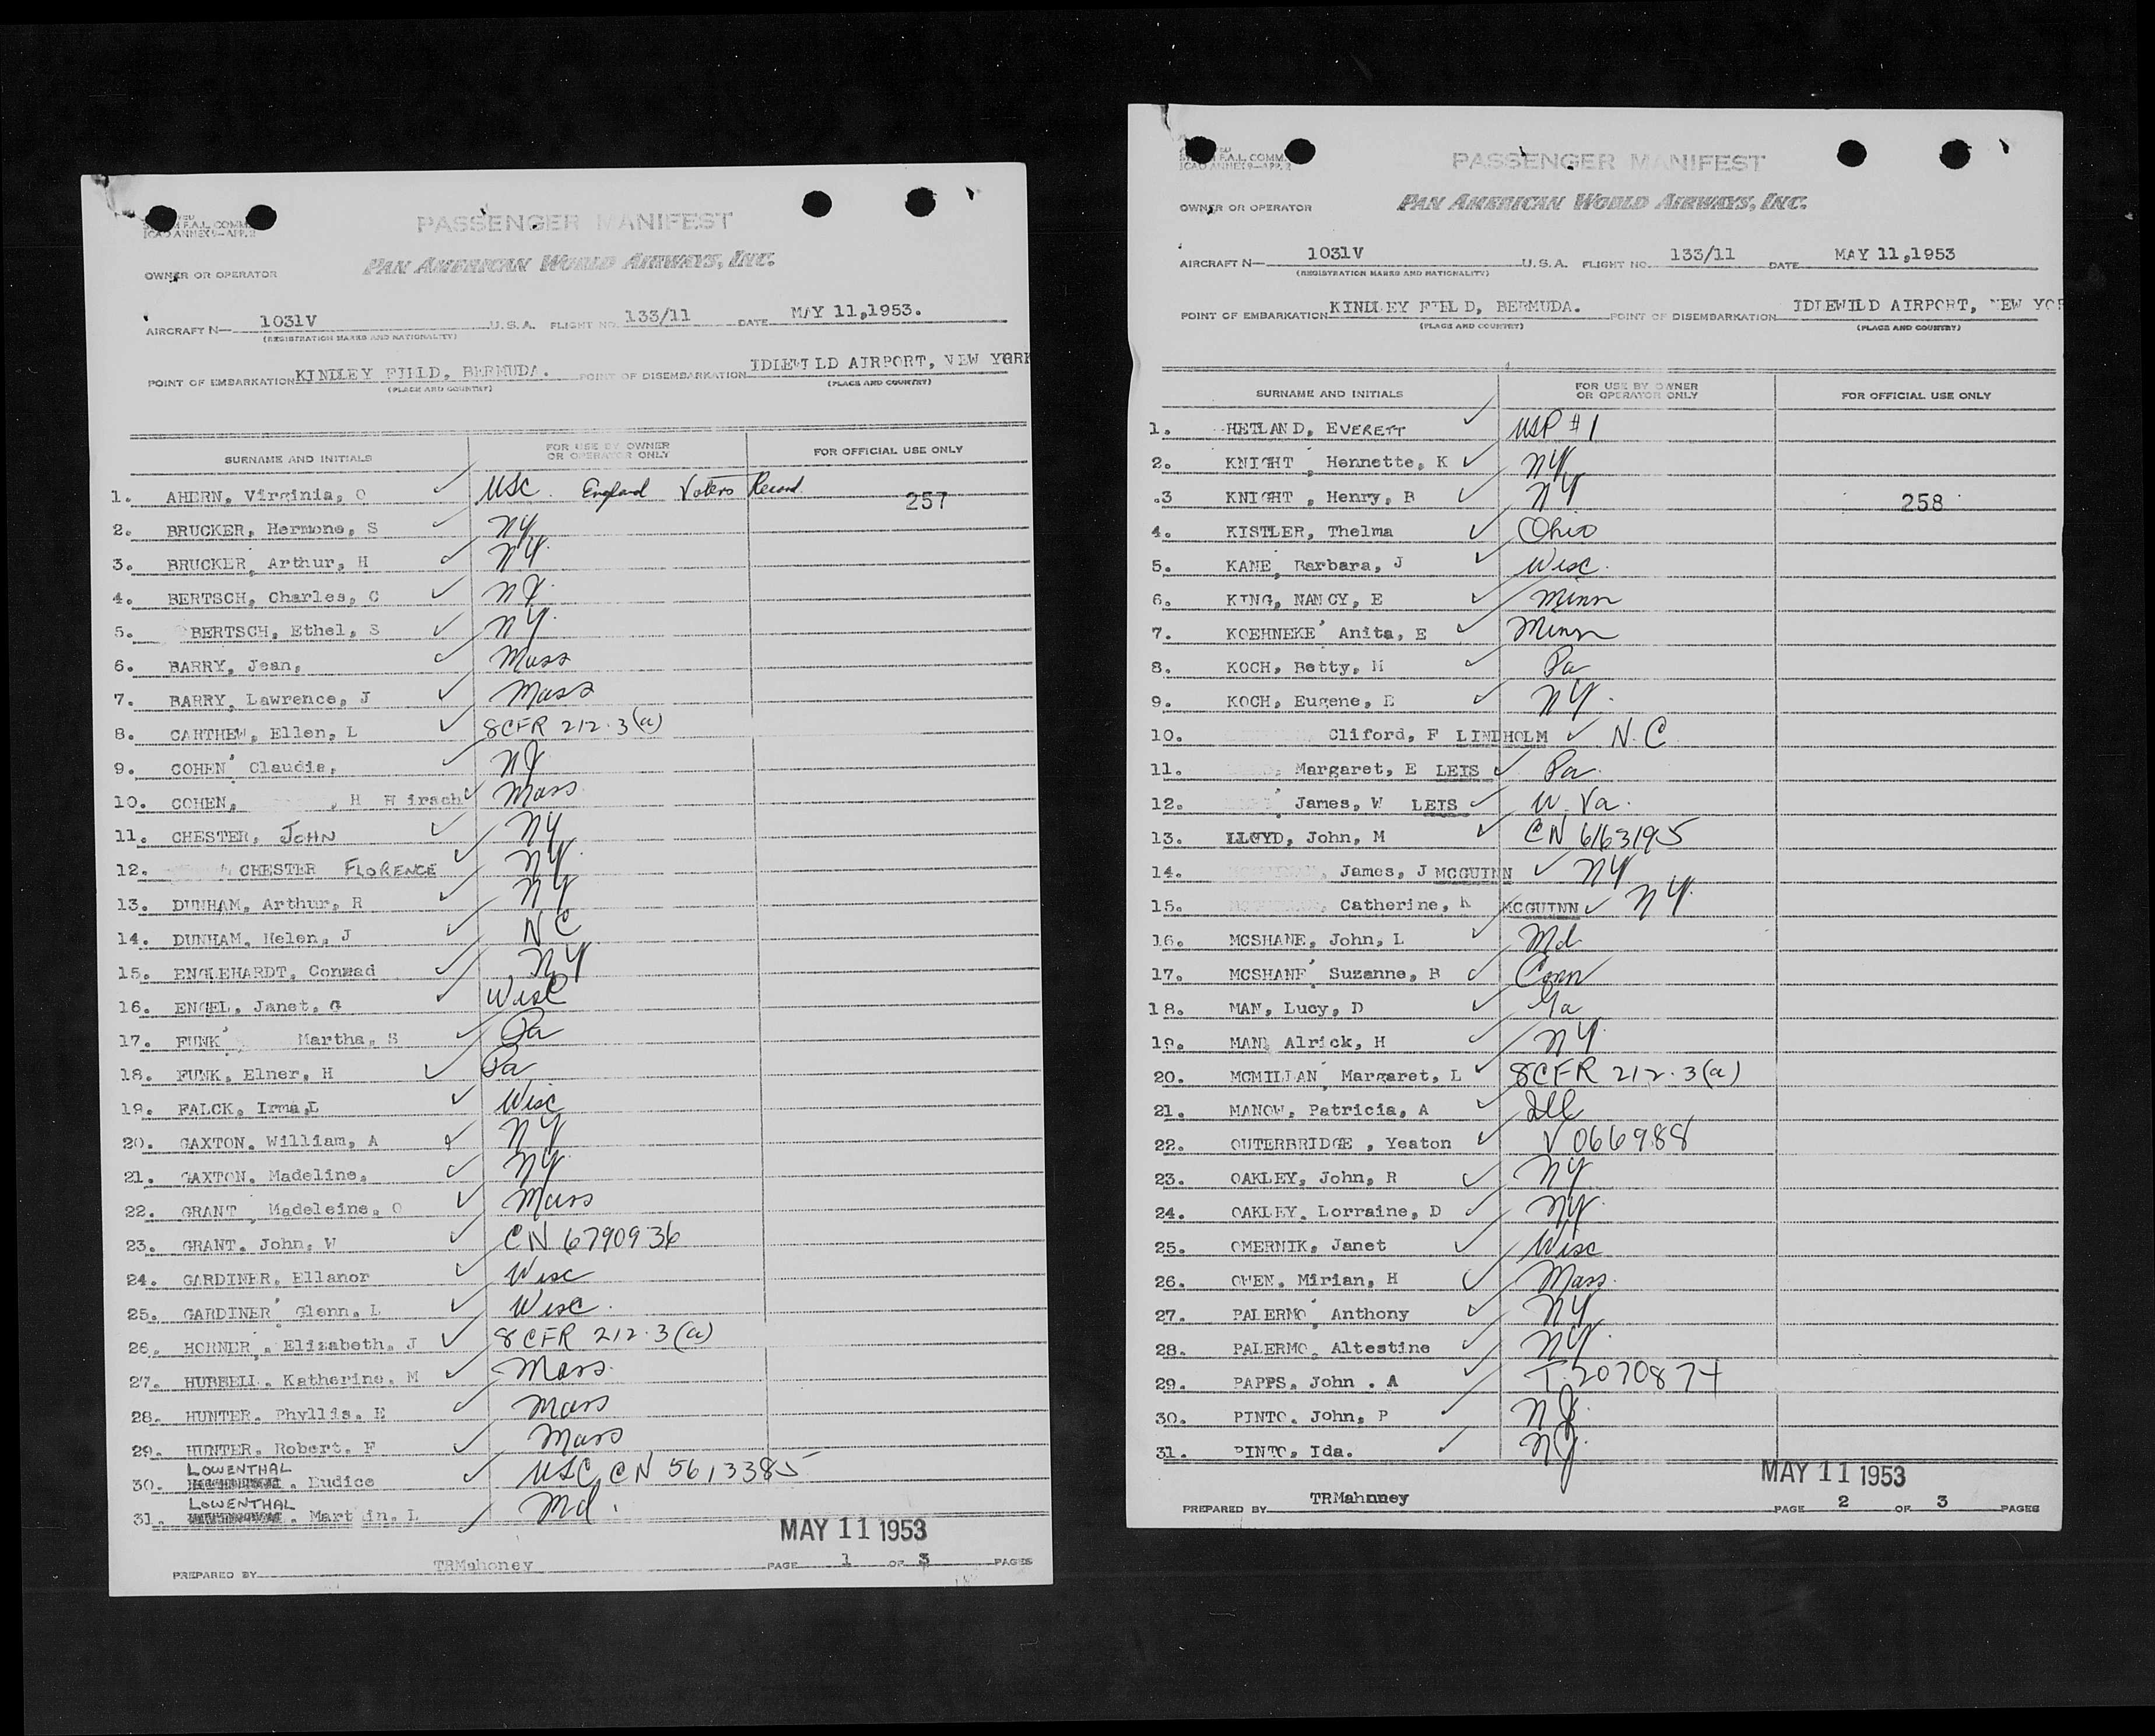 F.A.L. COMM.
ICAO ANNEX 9—APP. 2
PASSENGER MANIFEST
OWNER OR OPERATOR
PAN AMERICAN WORLD AIRWAYS, INC.
AIRCRAFT N— 1031V U.S.A. FLIGHT NO. 133/11 DATE MAY 11,1953.
(REGISTRATION MARKS AND NATIONALITY)
POINT OF EMBARKATION KINDLEY FIELD, BERMUDA. POINT OF DISEMBARKATION IDLEWILD AIRPORT, NEW YORK
(PLACE AND COUNTRY) (PLACE AND COUNTRY)
SURNAME AND INITIALS FOR USE BY OWNER OR OPERATOR ONLY FOR OFFICIAL USE ONLY
1. AHERN, Virginia, O ✓ USC. England Voters Record. 257
2. BRUCKER, Hermone, S ✓ NY
3. BRUCKER, Arthur, H ✓ NY.
4. BERTSCH, Charles, C ✓ NY.
5. BERTSCH, Ethel, S ✓ NY.
6. BARRY, Jean, ✓ Mass
7. BARRY, Lawrence, J ✓ Mass
8. CARTHEW, Ellen, L ✓ 8CFR 212.3(a)
9. COHEN, Claudie, ✓ NJ
10. COHEN, , H Hirsch ✓ Mass
11. CHESTER, JOHN ✓ NY
12. CHESTER FLORENCE ✓ NY.
13. DUNHAM, Arthur, R ✓ NY
14. DUNHAM, Helen, J ✓ NC
15. ENGLEHARDT, Conrad ✓ NY
16. ENGEL, Janet, G ✓ Wisc
17. FUNK, Martha, S ✓ Pa
18. FUNK, Elner, H ✓ Pa
19. FALCK, Irma,L ✓ Wisc
20. GAXTON, William, A ✓ NY
21. GAXTON, Madeline, ✓ NY.
22. GRANT, Madeleine, O ✓ Mass
23. GRANT, John, W ✓ CN 6790936
24. GARDINER, Ellanor ✓ Wisc
25. GARDINER, Glenn, L ✓ Wisc.
26. HORNER, Elizabeth, J ✓ 8CFR 212.3(a)
27. HUBBELL, Katherine, M ✓ Mass.
28. HUNTER, Phyllis, E ✓ Mass
29. HUNTER, Robert, F ✓ Mass
LOWENTHAL
30. , Eudice ✓ USC, CN 5613385
LOWENTHAL
31. , Martin, L ✓ Md.
MAY 11 1953
PREPARED BY TRMahoney PAGE 1 OF 3 PAGES
F.A.L. COMM.
ICAO ANNEX 9—APP. 2
PASSENGER MANIFEST
OWNER OR OPERATOR
PAN AMERICAN WORLD AIRWAYS, INC.
AIRCRAFT N— 1031V U.S.A. FLIGHT NO. 133/11 DATE MAY 11,1953
(REGISTRATION MARKS AND NATIONALITY)
POINT OF EMBARKATION KINDLEY FIELD, BERMUDA. POINT OF DISEMBARKATION IDLEWILD AIRPORT, NEW YOR
(PLACE AND COUNTRY) (PLACE AND COUNTRY)
SURNAME AND INITIALS FOR USE BY OWNER OR OPERATOR ONLY FOR OFFICIAL USE ONLY
1. HETLAND, EVERETT ✓ USP #1
2. KNIGHT, Hennette, K ✓ NY
.3 KNIGHT, Henry, B ✓ NY 258
4. KISTLER, Thelma ✓ Ohio
5. KANE, Barbara, J ✓ Wisc.
6. KING, NANCY, E ✓ Minn
7. KOEHNEKE, Anita, E ✓ Minn
8. KOCH, Betty, M ✓ Pa
9. KOCH, Eugene, E ✓ NY.
10. Cliford, F LINDHOLM ✓ N.C
11. , Margaret, E LEIS ✓ Pa.
12. James, W LEIS ✓ W. Va.
13. LLOYD, John, M ✓ CN 6163195
14. , James, J MCGUINN ✓ NY
15. , Catherine, K MCGUINN ✓ NY.
16. MCSHANE, John, L ✓ Md
17. MCSHANE, Suzanne, B ✓ Conn
18. MAN, Lucy, D ✓ Ga
19. MAN, Alrick, H ✓ NY.
20. MCMILLAN, Margaret, L ✓ 8CFR 212.3(a)
21. MANOW, Patricia, A ✓ Ill
22. OUTERBRIDGE, Yeaton ✓ V 066988
23. OAKLEY, John, R ✓ NY
24. OAKLEY, Lorraine, D ✓ NY.
25. OMERNIK, Janet ✓ Wisc
26. OWEN, Mirian, H ✓ Mass.
27. PALERMO, Anthony ✓ NY
28. PALERMO, Altestine ✓ NY.
29. PAPPS, John . A ✓ T.2070874
30. PINTO, John, P ✓ NJ.
31. PINTO, Ida. ✓ NJ.
MAY 11 1953
PREPARED BY TRMahnney PAGE 2 OF 3 PAGES